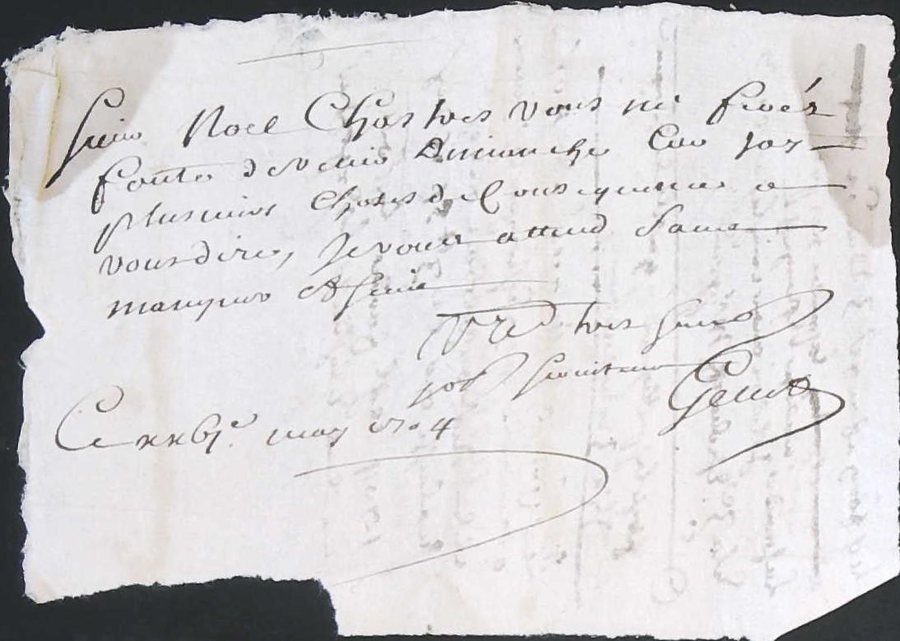 Sieur Noel Chartres vous ne ferés
faute de venir dimanche car Jay
plusieurs choses de Consequence a
vous dire, Je vous attend sans
manquer et suis
Vre tres
serviteur
Ce xxvie. may 1704